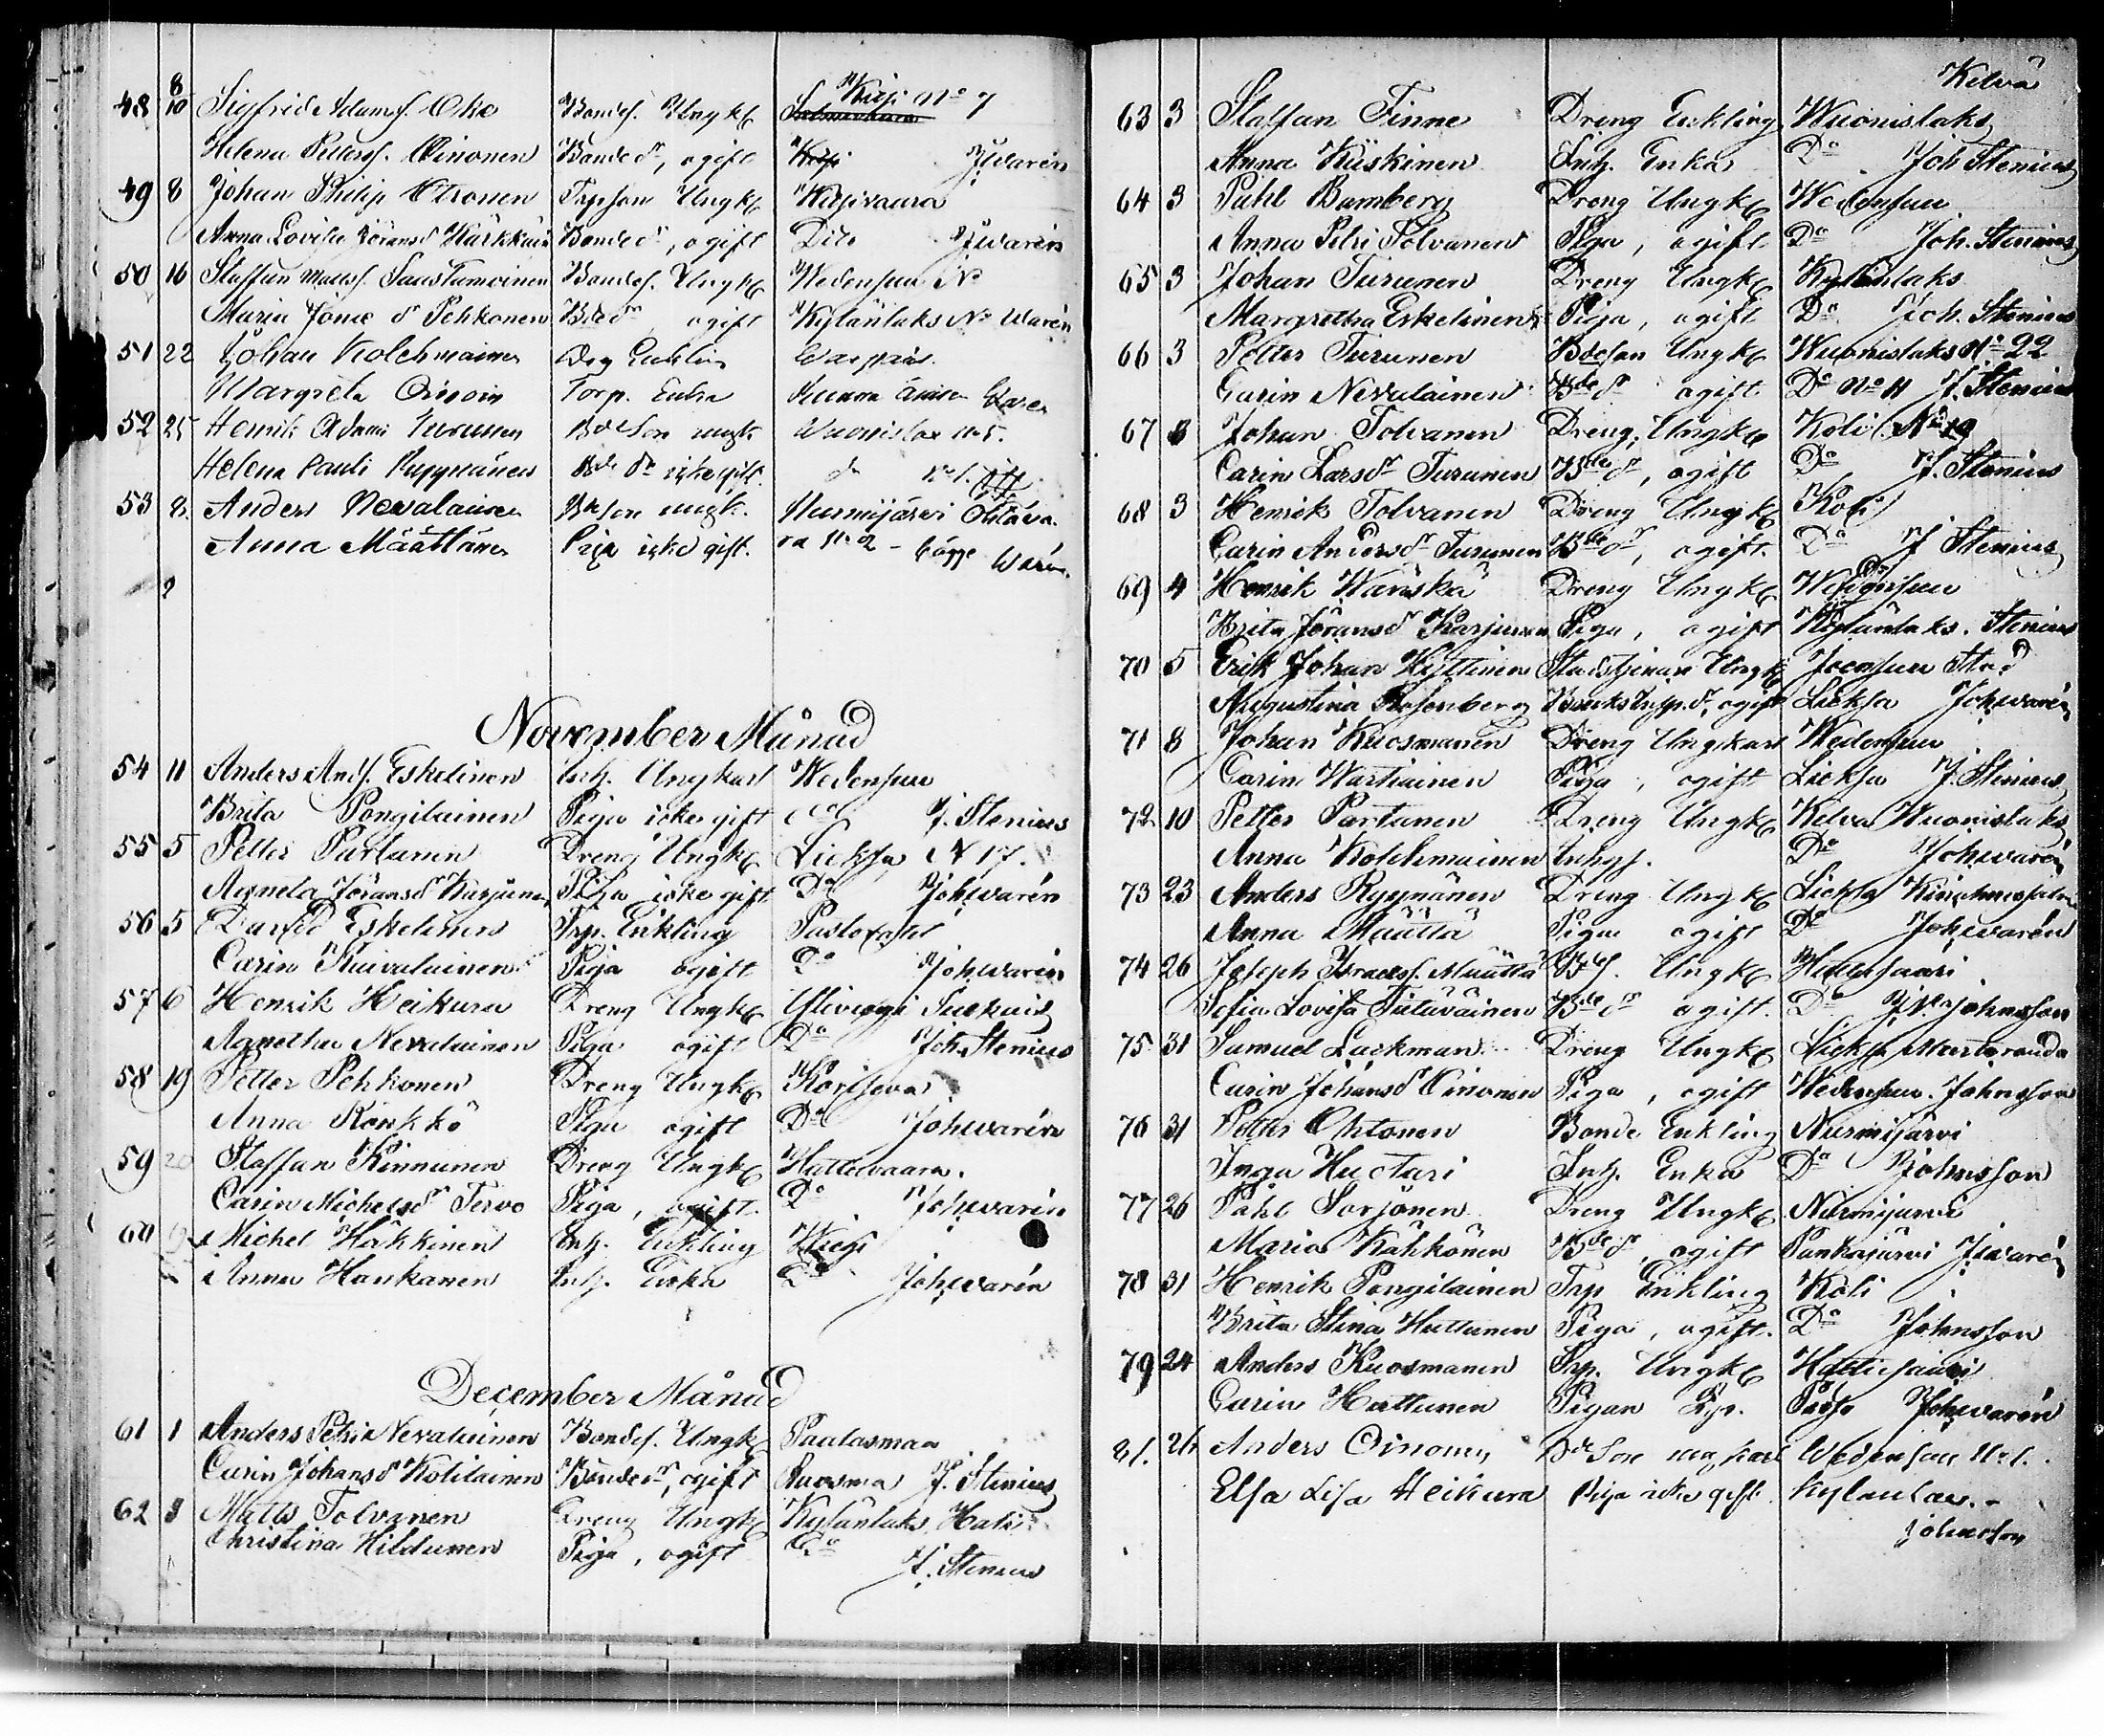 Kisi No 7
48 8/10 Sigfrid Adamss. Oke Bondes. Ungk.
Helena Petterss. Oinonen Bonded:r, ogift Kisi J. Warén
49 8 Johan Philip Otronen Trpson Ungk. Kisivaara
Anna Lovisa Jöransd Kärkkäin Bonded:r, ogift Dito J Warén
50 16 Staffan Matss. Saastamoinen Bondes. Ungk. Wedensuu No
Maria Jonæ dr Pehkonen Bdedr ogift Kylänlaks No Warén
51 22 Johan Kolehmainen Drg Enkling
Margreta Torp. Enka
52 25 Henrik Adami Turunen Bdeson ungk. Wuonislax No 5.
Helena Pauli Ryynänen Bde dr icke gift. do
53 8. Anders Nevalainen Bdeson ungk. Nurmijärvi
Anna Määttänen Piga icke gift. No 2 - bägge Warén
November Månad
54 11 Anders Ands. Eskelinen Inh. Ungkarl Wedensuu
Brita Pongilainen Piga icke gift do J. Stenius
55 5 Petter Partanen Dreng Ungk. Lieksa N 17.
Agneta Jöransdr Karjunen Piga icke gift Do Joh. Warén
56 5 David Eskelinen Trp. Enkling
Carin Kuivalainen Piga ogift Do Joh Warén
57 6 Henrik Heikura Dreng Ungk.
Agnetha Nevalainen Piga ogift Do Joh. Stenius
58 19 Petter Pehkonen Dreng Ungk.
Anna Rönkkö Piga ogift Do Joh Warén
59 20 Staffan Kinnunen Dreng Ungk. Hattuvaara.
Carin Michelsdr Tervo Piga, ogift. Do Joh. Warén
60 Michel Häkkinen Inh. Enkling Kisi
Anna Haukanen Inh. Enka Do Joh. Warén
December Månad
61 1 Anders Petri Nevalainen Bondes. Ungk. Paalasmaa
Carin Johansdr Kotilainen Bondedr, ogift Ruosma J. Stenius
62 3 Matts Tolvanen Dreng Ungk. Kylänlaks
Christina Hildunen Piga, ogift Do
J. Stenius
Kelvä
63 3 Staffan Finne Dreng Enkling Wuonislaks
Anna Kiiskinen Inh. Enka Do Joh Stenius
64 3 Pahl Bamberg Dreng Ungk. Wedensuu
Anna Petri Tolvanen Piga, ogift Do Joh. Stenius
65 3 Johan Turunen Dreng Ungk. Kylänlaks
Margretha Eskelinen Piga, ogift Do Joh. Stenius
66 3 Petter Turunen Bdeson Ungk. Wuonislaks No 22
Carin Nevalainen Bdedr ogift Do No 11 J. Stenius
67 3 Johan Tolvanen Dreng, Ungk. Koli No 19
Carin Larsdr Turunen Bdedr, ogift Do J. Stenius
68 3 Henrik Tolvanen Dreng Ungk. Koli
Carin Andersdr Turunen Bdedr, ogift. Do J Stenius
69 4 Henrik Wänskä Dreng Ungk. Wedensuu
Brita Jöransdr Karjunen Piga, ogift Kylänlaks. Stenius
70 5 Erik Johan Hyttinen Stadstjenare Ungk. Joensuu Stad
Augustina Rosenberg Bruks Insp.dr, ogift Lieksa Joh. Warén
71 8 Johan Kuosmanen Dreng Ungkarl Wedensuu
Carin Wartiainen Piga, ogift Lieksa J. Stenius
72 10 Petter Partanen Dreng Ungk. Kelvä Wuonislaks
Anna Kolehmainen Inhys. Do Joh. Warén
73 23 Anders Ryynänen Dreng Ungk. Lieksa
Anna Määttä Piga ogift Do Joh. Warén
74 26 Joseph Israelss. Määttä Bdes. Ungk.
Sofia Lovisa Tiitäväinen Bdedr ogift. Do Johnsson
75 31 Samuel Lackman Dreng Ungk. Lieksa Masteranda
Carin Johansdr Oinonen Piga, ogift Wedensuu. Johnsson
76 31 Petter Ohtonen Bonde Enkling Nurmijärvi
Inga Huctari Inh. Enka Do Johnsson
77 26 Pahl Sorjonen Dreng Ungk. Nurmijärvi
Maria Kähkönen Bdedr, ogift Pankajärvi J. Warén
78 31 Henrik Pongilainen Trp Enkling Koli
Brita Stina Huttunen Piga, ogift. Do Johnsson
79 24 Anders Kuosmanen Trp. Ungk. Hattusaari
Carin Huttunen Pigan Joh. Warén
81. 26 Anders Oinonen Bde Son ungkarl Wedensuu No 1.
Elsa Lisa Heikura Piga icke gift.
Johnsson